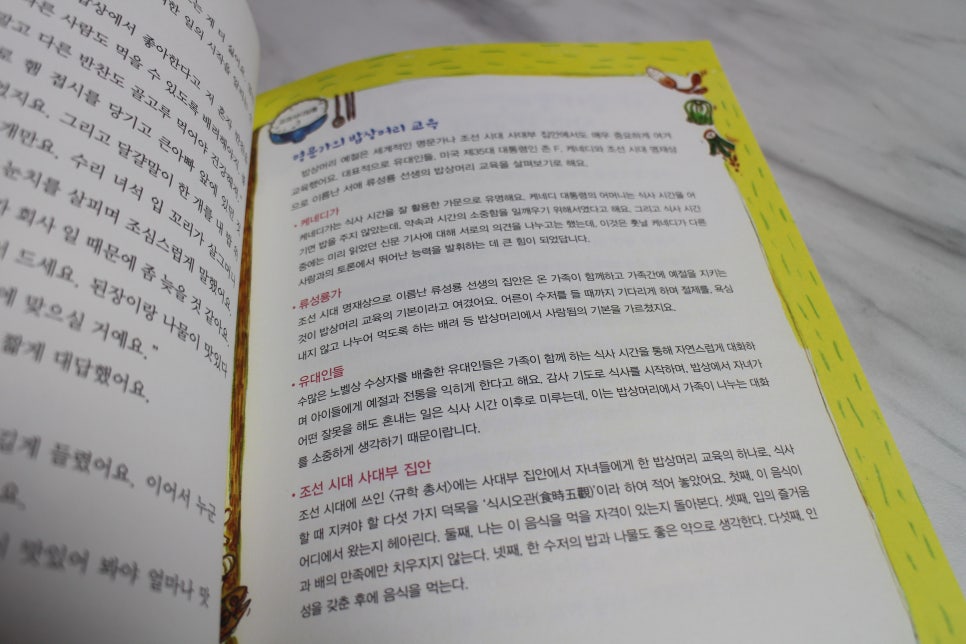 밥상에서 좋아한다고 저 혼자
다른 사람도 먹을 수 있도록 배려해야지.
말고 다른 반찬도 골고루 먹어야 건강해져."
로 햄 접시를 당기고 큰아빠 앞에 있던
었지요. 그리고 달걀말이 한 개를 내 밥 위
개만요. 수리 녀석 입 꼬리가 살그머니
눈치를 살피며 조심스럽게 말했어요.
회사 일 때문에 좀 늦을 것 같아요.
드세요. 된장이랑 나물이 맛있다
에 맞으실 거예요."
짧게 대답했어요.
깊게 들렸어요. 이어서 누군
요.
맛있어 봐야 얼마나 맛
명문가의 밥상머리 교육
밥상머리 예절은 세계적인 명문가나 조선 시대 사대부 집안에서도 매우 중요하게 여겨
교육했어요. 대표적으로 유대인들, 미국 제35대 대통령인 존 F. 케네디와 조선 시대 명재상
으로 이름난 서애 류성룡 선생의 밥상머리 교육을 살펴보기로 해요.
• 케네디가
케네디가는 식사 시간을 잘 활용한 가문으로 유명해요. 케네디 대통령의 어머니는 식사 시간을 어
기면 밥을 주지 않았는데, 약속과 시간의 소중함을 일깨우기 위해서였다고 해요. 그리고 식사 시간
중에는 미리 읽었던 신문 기사에 대해 서로의 의견을 나누고는 했는데, 이것은 훗날 케네디가 다른
사람과의 토론에서 뛰어난 능력을 발휘하는 데 큰 힘이 되었답니다.
• 류성룡가
조선 시대 명재상으로 이름난 류성룡 선생의 집안은 온 가족이 함께하고 가족간에 예절을 지키는
것이 밥상머리 교육의 기본이라고 여겼어요. 어른이 수저를 들 때까지 기다리게 하며 절제를, 욕심
내지 않고 나누어 먹도록 하는 배려 등 밥상머리에서 사람됨의 기본을 가르쳤지요.
• 유대인들
수많은 노벨상 수상자를 배출한 유대인들은 가족이 함께 하는 식사 시간을 통해 자연스럽게 대화하
며 아이들에게 예절과 전통을 익히게 한다고 해요. 감사 기도로 식사를 시작하며, 밥상에서 자녀가
어떤 잘못을 해도 혼내는 일은 식사 시간 이후로 미루는데, 이는 밥상머리에서 가족이 나누는 대화
를 소중하게 생각하기 때문이랍니다.
• 조선 시대 사대부 집안
조선 시대에 쓰인 〈규학 총서〉에는 사대부 집안에서 자녀들에게 한 밥상머리 교육의 하나로, 식사
할 때 지켜야 할 다섯 가지 덕목을 '식시오관(食時五觀)'이라 하여 적어 놓았어요. 첫째, 이 음식이
어디에서 왔는지 헤아린다. 둘째, 나는 이 음식을 먹을 자격이 있는지 돌아본다. 셋째, 입의 즐거움
과 배의 만족에만 치우지지 않는다. 넷째, 한 수저의 밥과 나물도 좋은 약으로 생각한다. 다섯째, 인
성을 갖춘 후에 음식을 먹는다.